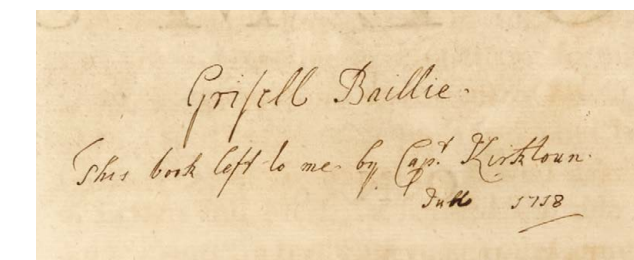 Grisell Baillie.
This book left to me by Capt Kirktoun.
1718